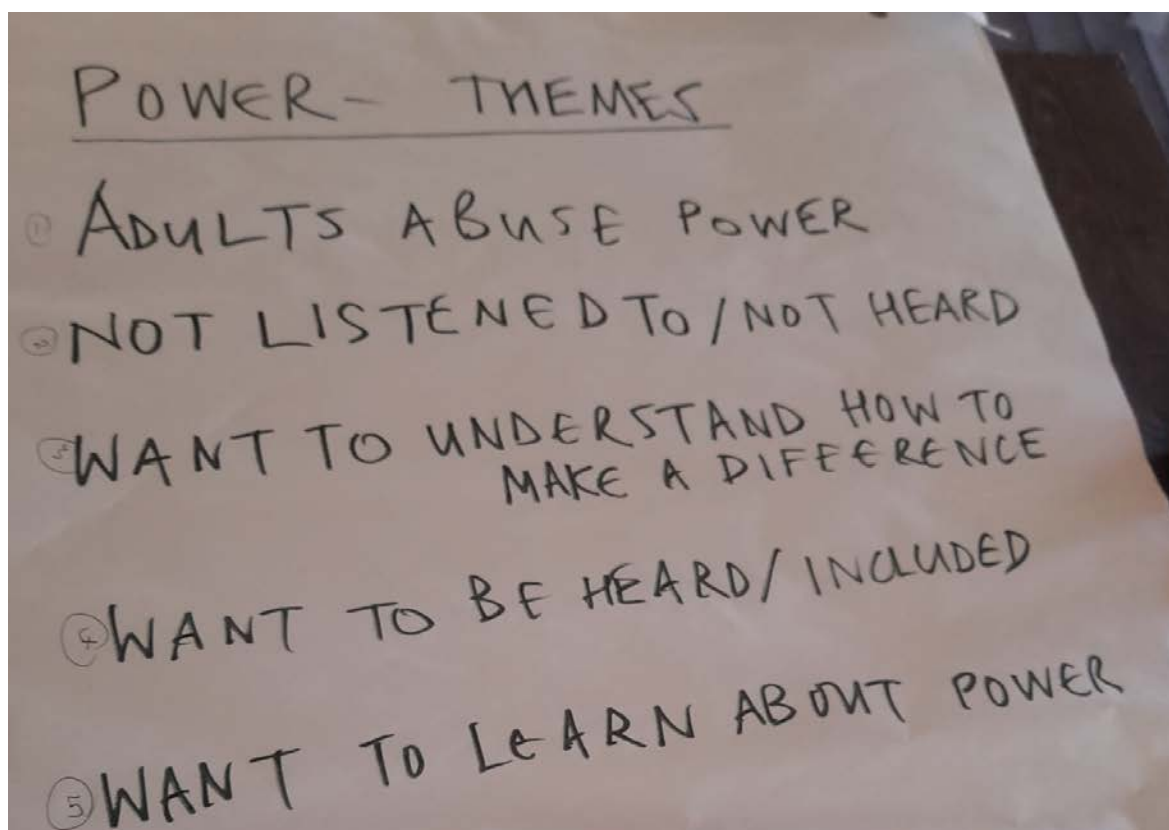 POWER - THEMES
① ADULTS ABUSE POWER
② NOT LISTENED TO / NOT HEARD
③ WANT TO UNDERSTAND HOW TO
MAKE A DIFFERENCE
④ WANT TO BE HEARD / INCLUDED
⑤ WANT TO LEARN ABOUT POWER